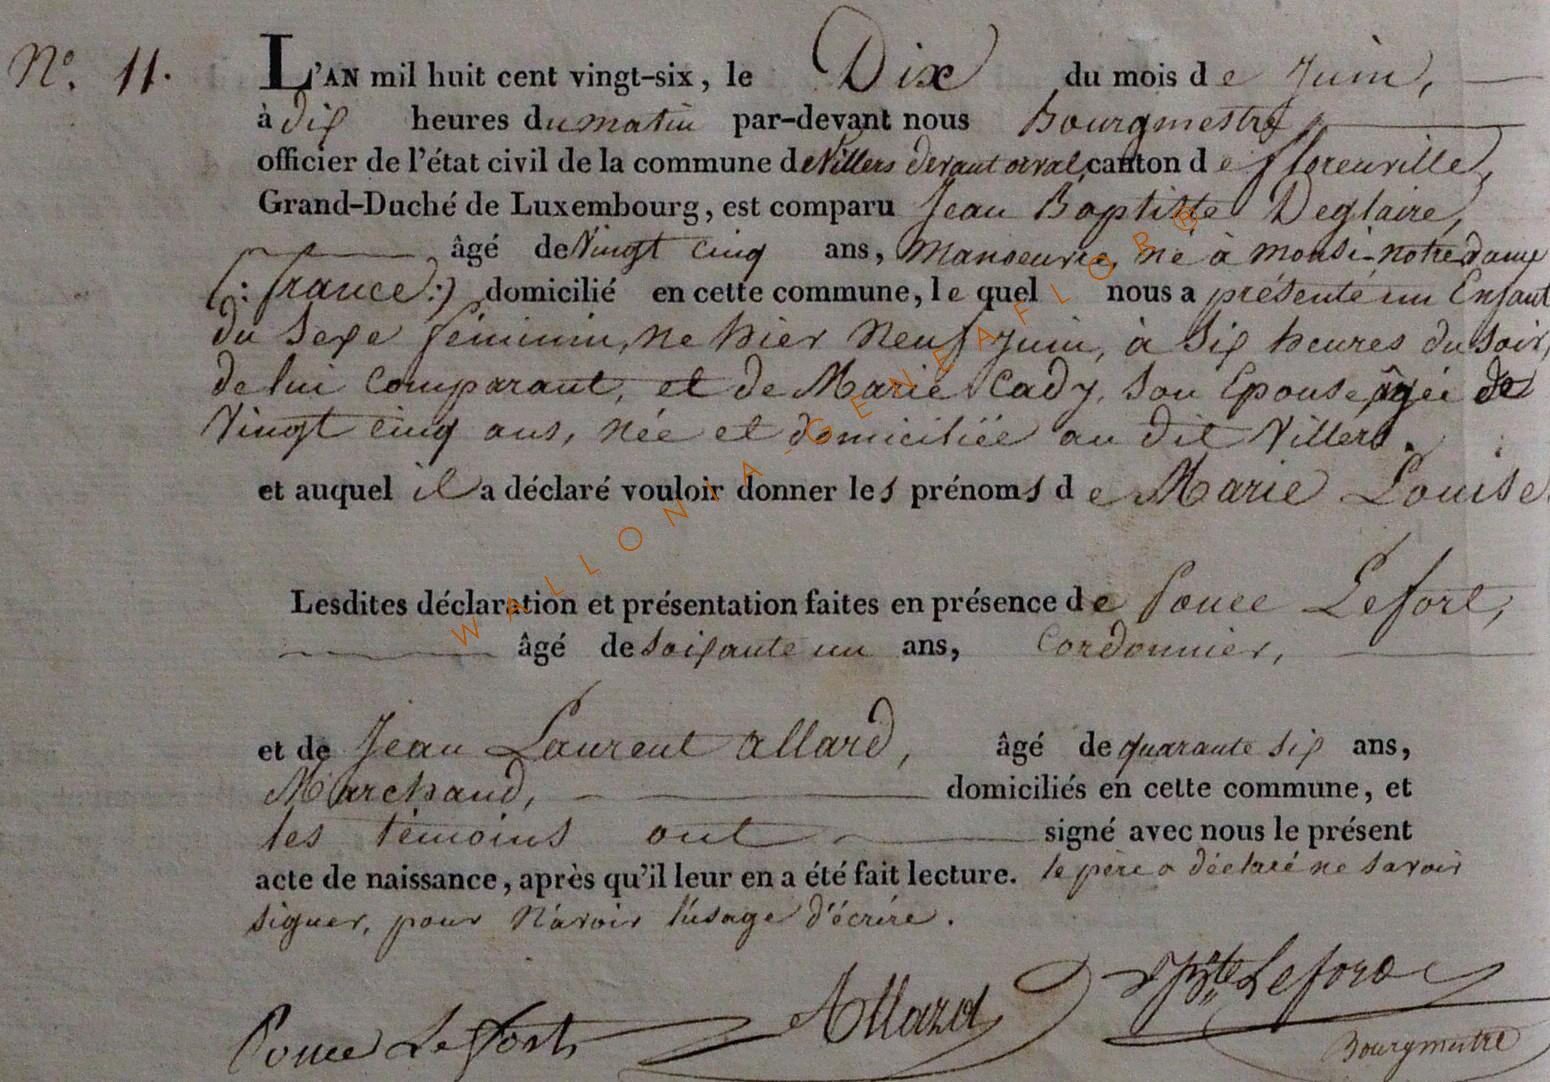 N.º 11. L'AN mil huit cent vingt-six, le Dix du mois de Juin,
à dix heures du matin par-devant nous Bourgmestre,
officier de l'état civil de la commune de Villers devant orval, canton de florenville,
Grand-Duché de Luxembourg, est comparu Jean Baptiste Deglaire,
âgé de Vingt cinq ans, Manoeuvre, né à mousi-notre dame
(: france :) domicilié en cette commune, le quel nous a présenté un Enfant
du Sexe féminin, né hier neuf Juin, à Six heures du Soir,
de lui Comparant, et de Marie Cady, Son Epouse, âgée de
Vingt cinq ans, née et domiciliée au dit Villers.
et auquel il a déclaré vouloir donner les prénoms de Marie Louise
Lesdites déclaration et présentation faites en présence de Ponce Lefort,
âgé de Soixante un ans, Cordonnier,
et de Jean Laurent allard, âgé de quarante Six ans,
Marchand, domiciliés en cette commune, et
les témoins ont signé avec nous le présent
acte de naissance, après qu'il leur en a été fait lecture. le père a déclaré ne savoir
signer, pour n'avoir l'usage d'écrire.
Ponce Lefort Allard Lefort
Bourgmestre
WALLONIA-GENEAFLORE